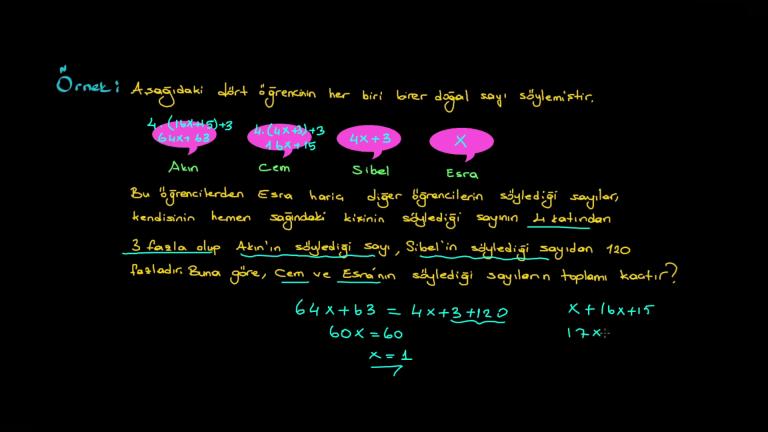 Örnek: Aşağıdaki dört öğrencinin her biri birer doğal sayı söylemiştir.
4.(16x+15)+3 4.(4x+3)+3
64x+63 16x+15 4x+3 x
Akın Cem Sibel Esra
Bu öğrencilerden Esra hariç diğer öğrencilerin söylediği sayılar,
kendisinin hemen sağındaki kişinin söylediği sayının 4 katından
3 fazla olup Akın'ın söylediği sayı, Sibel'in söylediği sayıdan 120
fazladır. Buna göre, Cem ve Esra'nın söylediği sayıların toplamı kaçtır?
64x+63 = 4x+3+120 x+16x+15
60x = 60 17x
x = 1